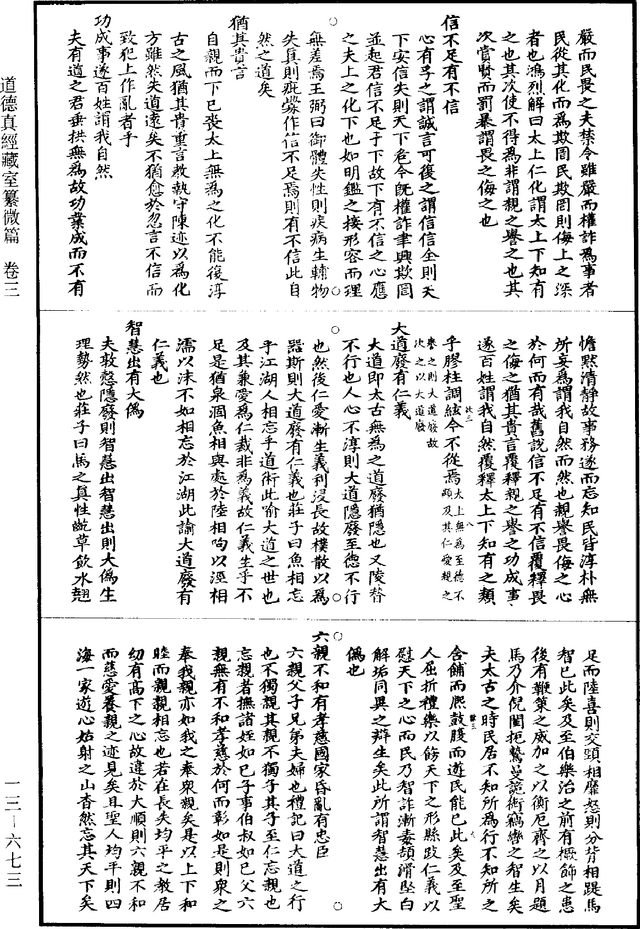 嚴而民畏之夫禁令雖嚴而權詐爲事者
民從其化而爲欺罔民欺罔則侮上之深
者也鴻烈解曰太上仁化謂太上下知有
之也其次使不得爲非謂親之譽之也其
次賞賢而罰暴謂畏之侮之也
信不足有不信
心有孚之謂誠言可復之謂信信全則天
下安信失則天下危令旣權詐聿興欺罔
並起君信不足于下故下有不信之心應
之夫上之化下也如明鑑之接形容而理
無差焉王弼曰御體失性則疾病生輔物
失真則疵釁作信不足焉則有不信此自
然之道矣
猶其貴言
自親而下已喪太上無爲之化不能復淳
古之風猶其貴重言教執守陳迹以爲化
方雖然失道遠矣不猶愈於忽言不信而
致犯上作亂者乎
功成事遂百姓謂我自然
夫有道之君垂拱無爲故功業成而不有
憺默清静故事務遂而忘知民皆淳朴無
所妄爲謂我自然而然也親譽畏侮之心
於何而有哉舊說信不足有不信覆釋畏
之侮之猶其貴言覆釋親之譽之功成事
遂百姓謂我自然覆釋太上下知有之類
乎膠柱調絃今不從焉
太上無爲至德不
顯及其仁愛親之
譽之則大道廢故
次之以大道廢
大道廢有仁義
大道即太古無爲之道廢猶隱也又陵替
不行也人心不淳則大道隱廢至德不行
也然後仁愛漸生義利浸長故樸散以爲
器斯則大道廢有仁義也莊子曰魚相忘
乎江湖人相忘乎道術此喻大道之世也
及其兼愛爲仁裁非爲義故仁義生乎不
足是猶泉涸魚相與處於陸相呴以溼相
濡以沫不如相忘於江湖此諭大道廢有
仁義也
智慧出有大僞
夫敦慤隱廢則智慧出智慧出則大僞生
理勢然也莊子曰馬之真性齕草飲水翹
足而陸喜則交頸相靡怒則分背相踶馬
智已此矣及至伯樂治之前有橛飾之患
後有鞭筴之威加之以衡扼齊之以月題
馬乃介倪闉扼鷙曼詭銜竊轡之智生矣
夫太古之時民居不知所爲行不知所之
含餔而熙鼓腹而遊民能已此矣及至聖
人屈折禮樂以飭天下之形縣跂仁義以
慰天下之心而民乃智詐漸毒頡滑堅白
解垢同異之辯生矣此所謂智慧出有大
僞也
六親不和有孝慈國家昏亂有忠臣
六親父子兄弟夫婦也禮記曰大道之行
也不獨親其親不獨子其子至仁忘親也
忘親者撫諸姪如已子事伯叔如已父六
親無有不和孝慈於何而彰如是則衆之
奉我親亦如我之奉衆親矣是以上下和
睦而親親相忘也若在長失均平之教居
幼有高下之心故違於大順則六親不和
而慈愛養親之迹見矣且聖人均平則四
海一家遊心姑射之山杳然忘其天下矣
道德真經藏室纂微篇 卷三
一三—六七三